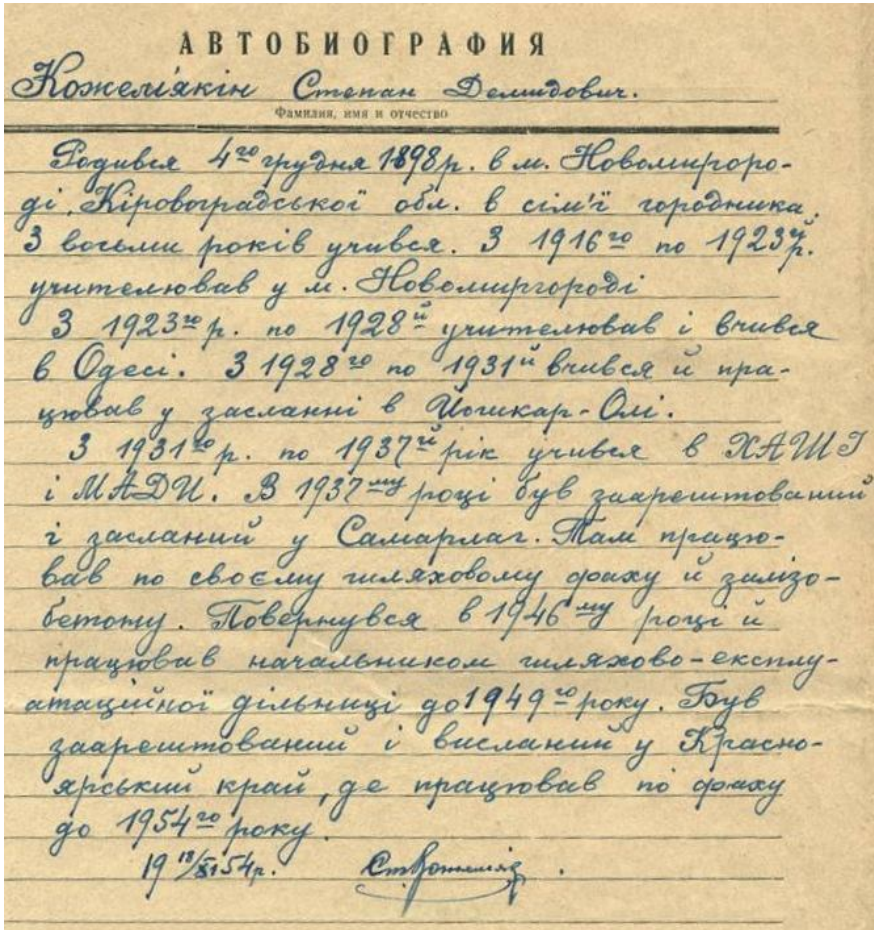 АВТОБИОГРАФИЯ
Кожем'якін Степан Демидович.
Фамилия, имя и отчество
Родився 4го грудня 1898р. в м. Новомиргоро-
ді, Кіровоградської обл. в сім'ї городника.
З восьми років учився. З 1916го по 1923й р.
учителював у м. Новомиргороді
З 1923го р. по 1928й учителював і вчився
в Одесі. З 1928го по 1931й вчився й пра-
цював у засланні в Йошкар-Олі.
З 1931го р. по 1937й рік учився в ХАШІ
і МАДИ. В 1937му році був заарештований
і засланий у Самарлаг. Там працю-
вав по своєму шляховому фаху й залізо-
бетону. Повернувся в 1946му році й
працював начальником шляхово-експлу-
атаційної дільниці до 1949го року. Був
заарештований і висланий у Красно-
ярський край, де працював по фаху
до 1954го року.
19 18/XI 54р.